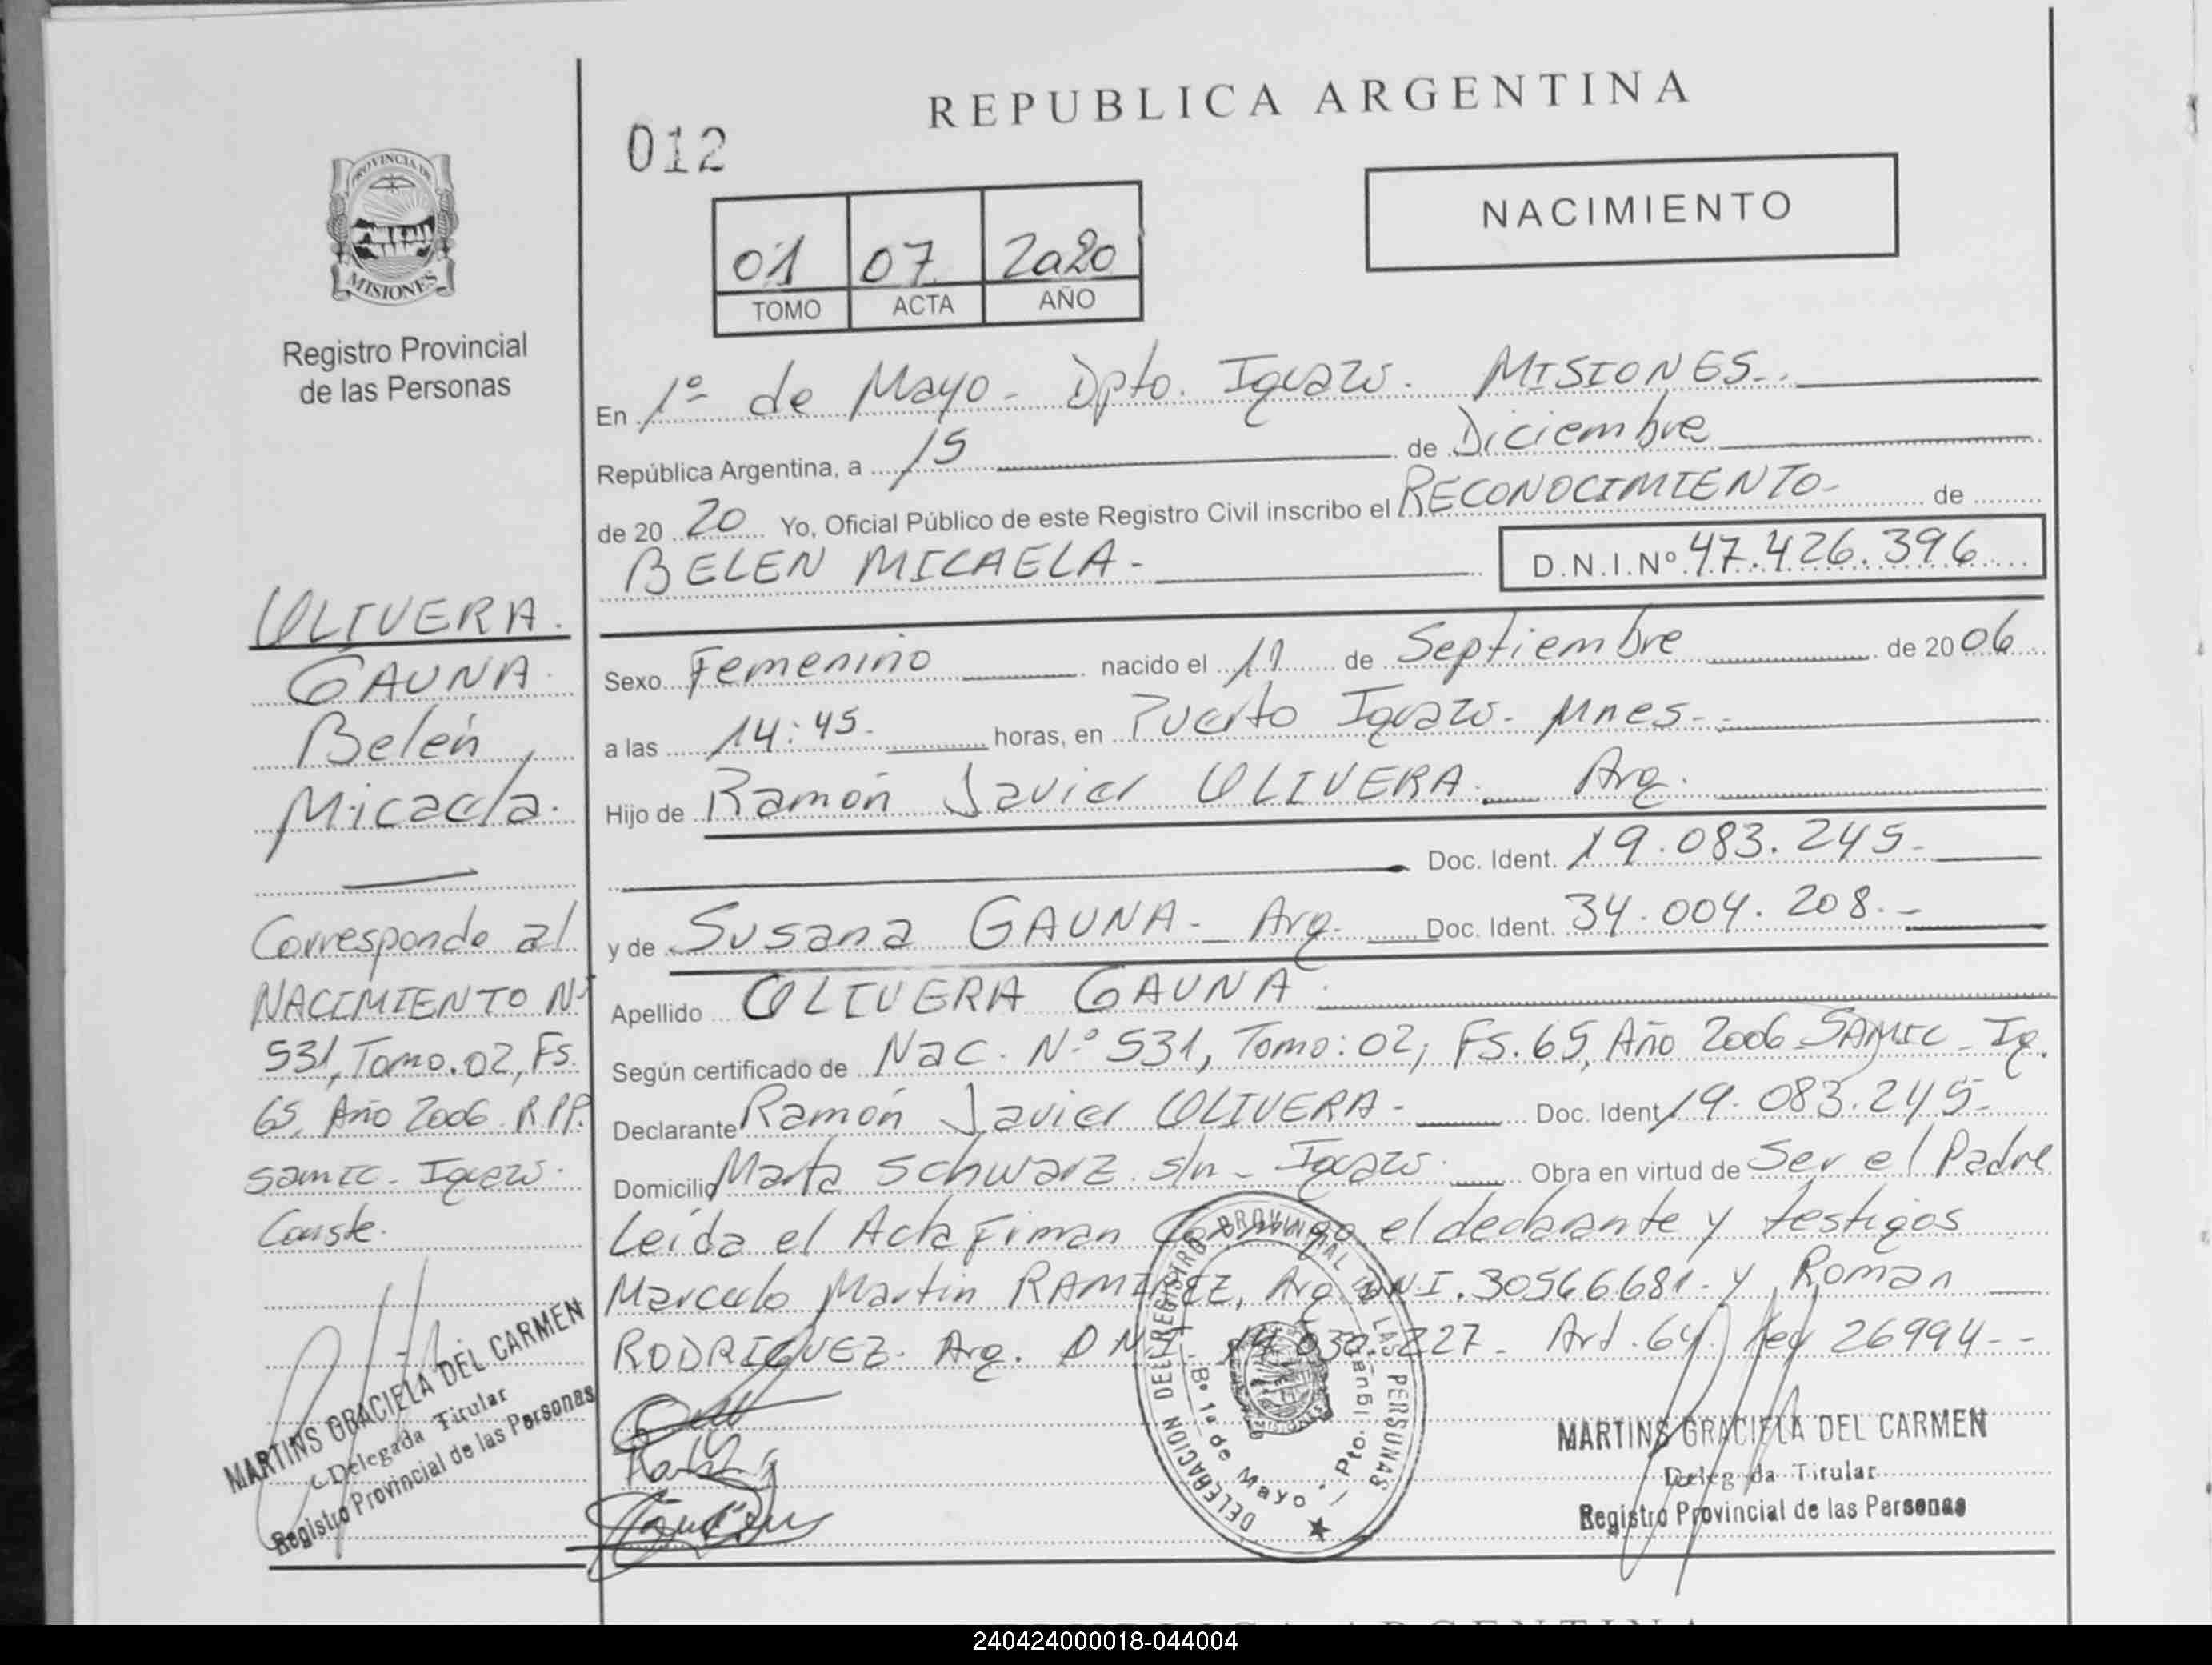 REPUBLICA ARGENTINA
012
NACIMIENTO
01 07 2020
TOMO ACTA AÑO
PROVINCIA DE
MISIONES
Registro Provincial
de las Personas
En 1º de Mayo - Dpto. Iguazú. MISIONES.
República Argentina, a 15 de Diciembre
de 20 20 Yo, Oficial Público de este Registro Civil inscribo el RECONOCIMIENTO- de
BELEN MICAELA.-
D.N.I.Nº 47.426.396
Sexo Femenino nacido el 11 de Septiembre de 20 06
a las 14:45.- horas, en Puerto Iguazú- Mnes.-
Hijo de Ramón Javier OLIVERA. Arg.
Doc. Ident. 19.083.245.-
y de Susana GAUNA.- Arg. Doc. Ident. 34.004.208.-
Apellido OLIVERA GAUNA.
Según certificado de Nac. Nº 531, Tomo: 02, Fs. 65, Año 2006 SAMIC - Ig.
Declarante Ramón Javier OLIVERA- Doc. Ident 19.083.245.-
Domicilio Marta Schwarz s/n - Iguazú. Obra en virtud de Ser el Padre
Leída el Acta Firman Conmigo el declarante y testigos
Marcelo Martin RAMIREZ, Arg DNI. 30566681- y Roman
RODRIGUEZ- Arg. DNI 227- Art. 64. Ley 26994--
OLIVERA.
GAUNA.
Belén
Micaela.
Corresponde al
NACIMIENTO Nº
531, Tomo. 02, Fs.
65, Año 2006. R.P.P.
SamIC - Iguazú.
Conste.
MARTINS GRACIELA DEL CARMEN
Delegada Titular
Registro Provincial de las Personas
DELEGACION DEL REGISTRO PROVINCIAL DE LAS PERSONAS
Bº 1º de Mayo
MARTINS GRACIELA DEL CARMEN
Delegada Titular
Registro Provincial de las Personas
240424000018-044004